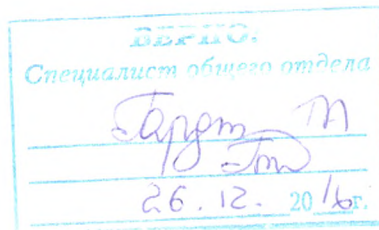 ВЕРНО:
Специалист общего отдела
26.12. 2016г.